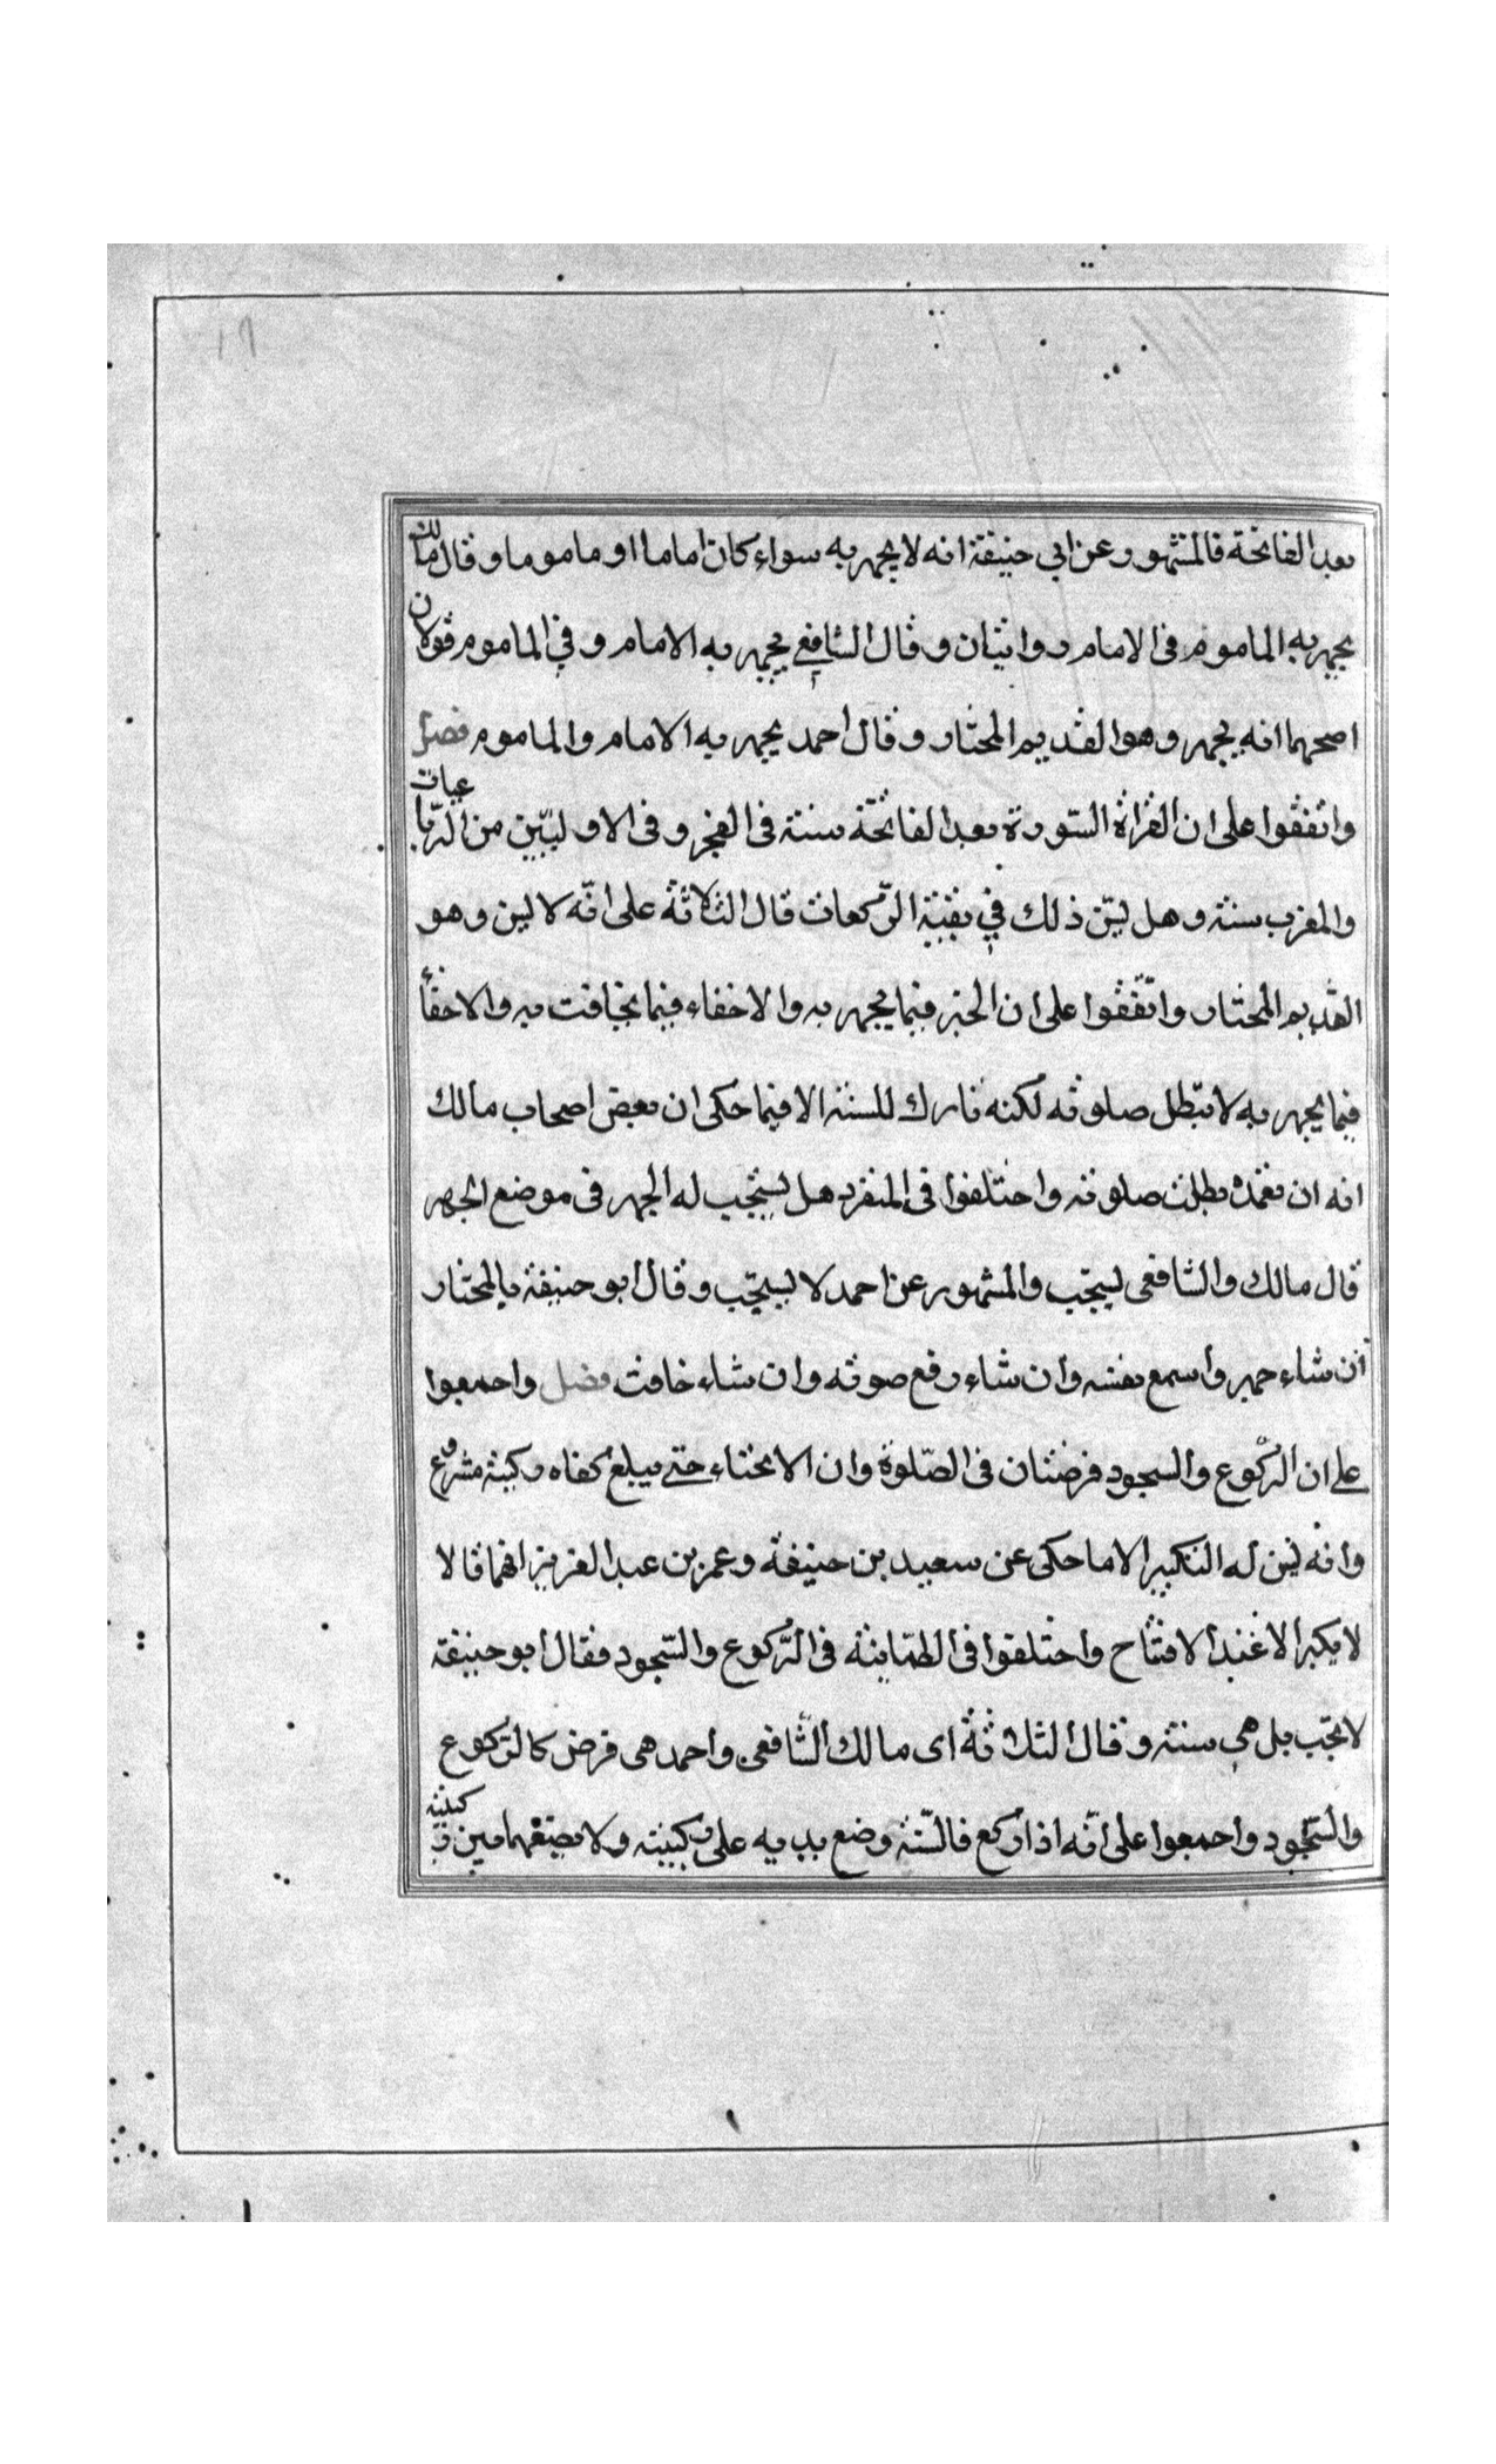 ١٦
بعد الفاتحة فالمشهور عن ابي حنيفة انه لا يجهر به سواء كان اماما او ماموما وقال مالك
يجهر به الماموم فى الامام روايتان وقال الشافعي يجهر به الامام وفي الماموم قولان
اصحهما انه يجهر وهو القديم المختار وقال احمد يجهر به الامام والماموم فصل
واتفقوا على ان القراة السورة بعد الفاتحة سنة فى الفجر وفى الاوليين من الرباعيات
والمغرب سنة وهل يسن ذلك في بقية الركعات قال الثلاثة على انه لا يسن وهو
القديم المختار واتفقوا على ان الجهر فيما يجهر به والاخفاء فيما يخافت به والاخفاء
فيما يجهر به لا تبطل صلوته لكنه تارك للسنة الا فيما حكى ان بعض اصحاب مالك
انه ان تعمد بطلت صلوته واختلفوا فى المنفرد هل يستحب له الجهر فى موضع الجهر
قال مالك والشافعى يستحب والمشهور عن احمد لا يستحب وقال ابو حنيفة بالمختار
ان شاء جهر واسمع نفسه وان شاء رفع صوته وان شاء خافت فصل واجمعوا
على ان الركوع والسجود فرضتان فى الصلوة وان الانحناء حتى يبلغ كفاه ركبته مشروع
وانه يسن له التكبير الا ما حكى عن سعيد بن حنيفة وعمر بن عبد العزيز انهما قالا
لا يكبر الا عند الافتتاح واختلفوا فى الطمانينة فى الركوع والسجود فقال ابو حنيفة
لا تجب بل هى سنة وقال الثلاثة اى مالك الشافعى واحمد هى فرض كالركوع
والسجود واجمعوا على انه اذا ركع فالسنة وضع يديه على ركبيته ولا يضعهما بين ركبيته